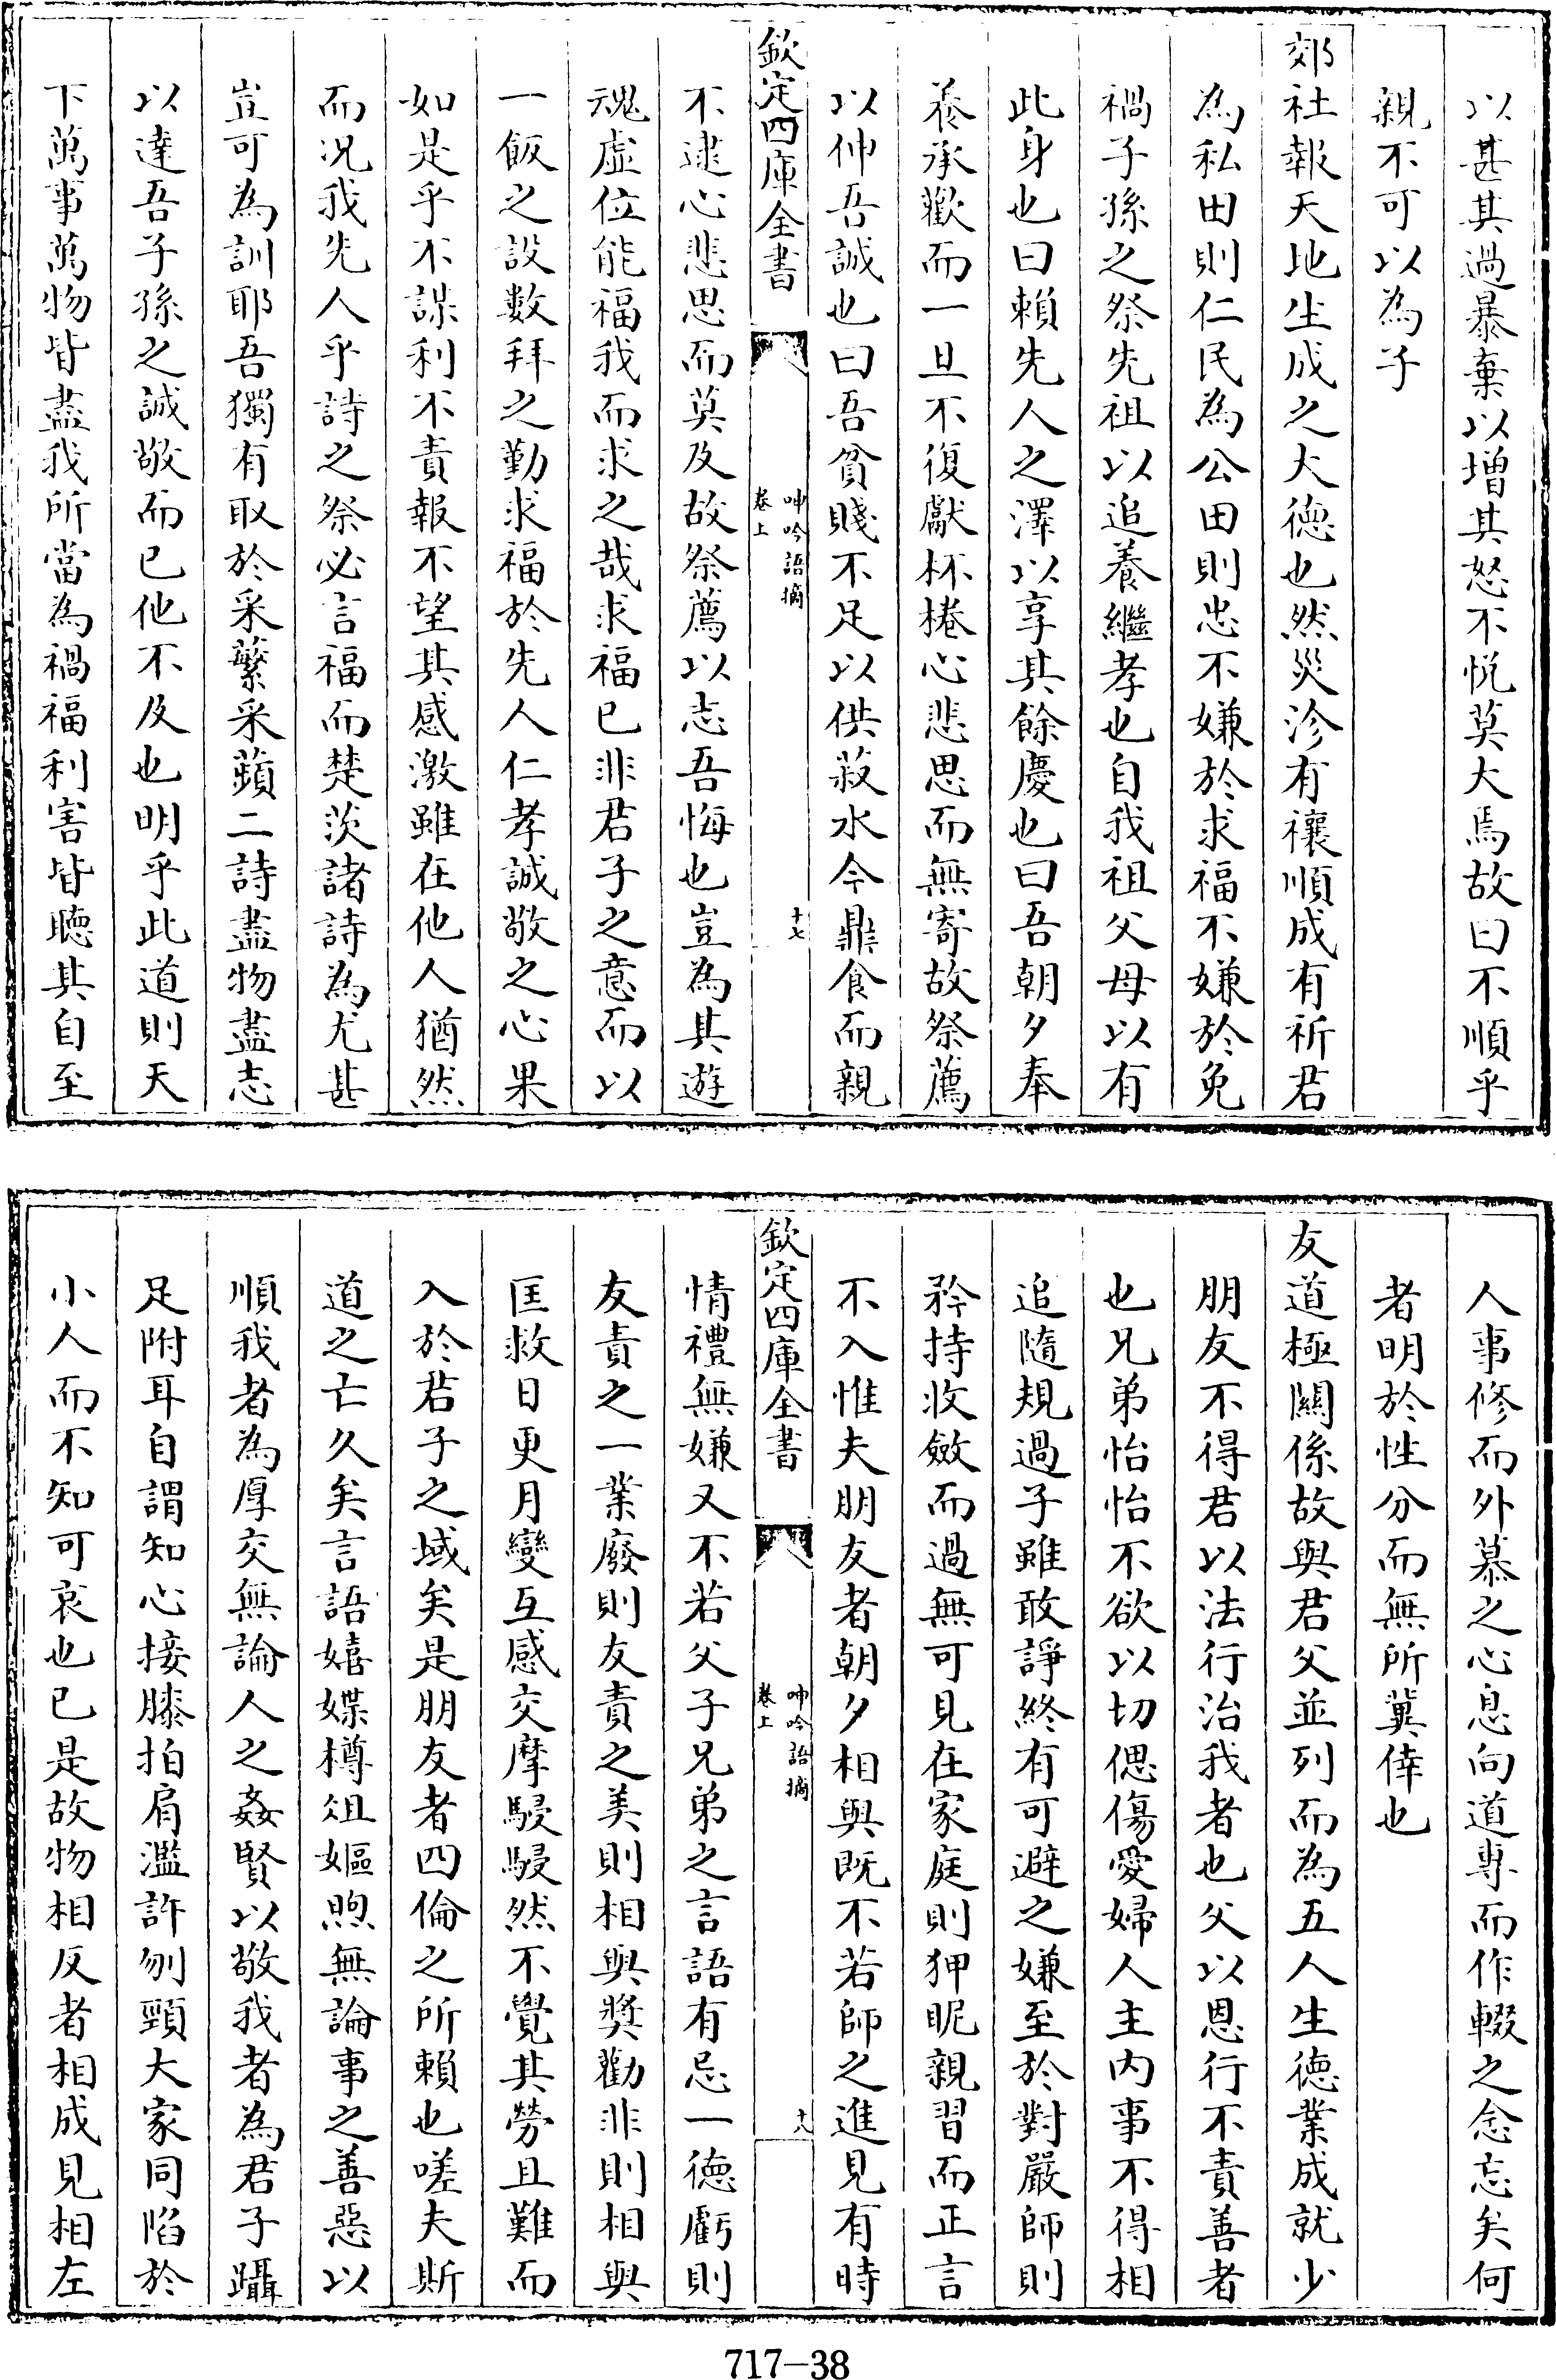 以甚其過暴棄以增其怒不悦莫大焉故曰不順乎
親不可以為子
郊社報天地生成之大徳也然災沴有禳順成有祈君
為私田則仁民為公田則忠不嫌於求福不嫌於免
禍子孫之祭先祖以追養繼孝也自我祖父母以有
此身也曰賴先人之澤以享其餘慶也曰吾朝夕奉
養承歡而一旦不復獻杯棬心悲思而無寄故祭薦
以伸吾誠也曰吾貧賤不足以供菽水今鼎食而親
欽定四庫全書
呻吟語摘
卷上
十七
不逮心悲思而莫及故祭薦以志吾悔也豈為其遊
魂虛位能福我而求之哉求福已非君子之意而以
一飯之設數拜之勤求福於先人仁孝誠敬之心果
如是乎不謀利不責報不望其感激雖在他人猶然
而况我先人乎詩之祭必言福而楚茨諸詩為尤甚
豈可為訓耶吾獨有取於采蘩采蘋二詩盡物盡志
以達吾子孫之誠敬而已他不及也明乎此道則天
下萬事萬物皆盡我所當為禍福利害皆聽其自至
人事修而外慕之心息向道專而作輟之念忘矣何
者明於性分而無所冀倖也
友道極關係故與君父並列而為五人生徳業成就少
朋友不得君以法行治我者也父以恩行不責善者
也兄弟怡怡不欲以切偲傷愛婦人主内事不得相
追隨規過子雖敢諍終有可避之嫌至於對嚴師則
矜持收斂而過無可見在家庭則狎昵親習而正言
不入惟夫朋友者朝夕相與既不若師之進見有時
欽定四庫全書
呻吟語摘
卷上
十八
情禮無嫌又不若父子兄弟之言語有忌一徳虧則
友責之一業廢則友責之美則相與奬勸非則相與
匡救日更月變互感交摩駸駸然不覺其勞且難而
入於君子之域矣是朋友者四倫之所賴也嗟夫斯
道之亡久矣言語嬉媟樽俎嫗煦無論事之善惡以
順我者為厚交無論人之姦賢以敬我者為君子躡
足附耳自謂知心接膝拍肩濫許刎頸大家同陷於
小人而不知可哀也已是故物相反者相成見相左
717-38